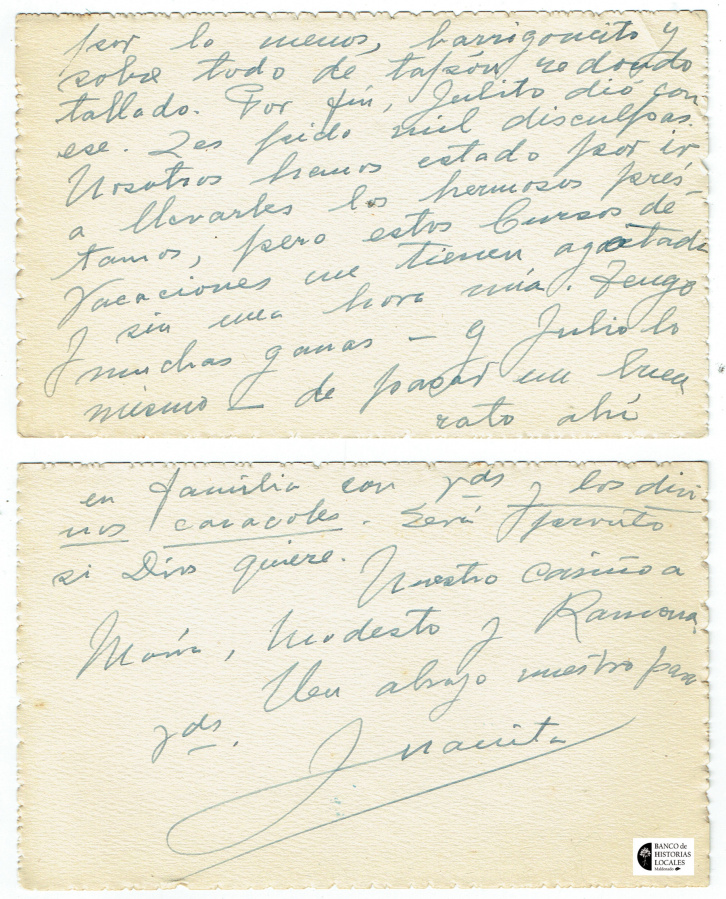 por lo menos, barrigoncito y
sobre todo de tapón redondo
tallado. Por fin, Julito dió con
ese. Les pido mil disculpas.
Nosotros hemos estado por ir
a llevarles los hermosos prés-
tamos, pero estos Cursos de
Vacaciones me tienen agotada
y sin una hora mía. Tengo
muchas ganas – y Julio lo
mismo – de pasar un buen
rato ahí
en familia con Vds y los divi-
nos caracoles. Será pronto
si Dios quiere.
Nuestro cariño a
María, Modesto y Ramona,
Un abrazo nuestro para
Vds.
Juanita
BANCO de
HISTORIAS
LOCALES
Maldonado